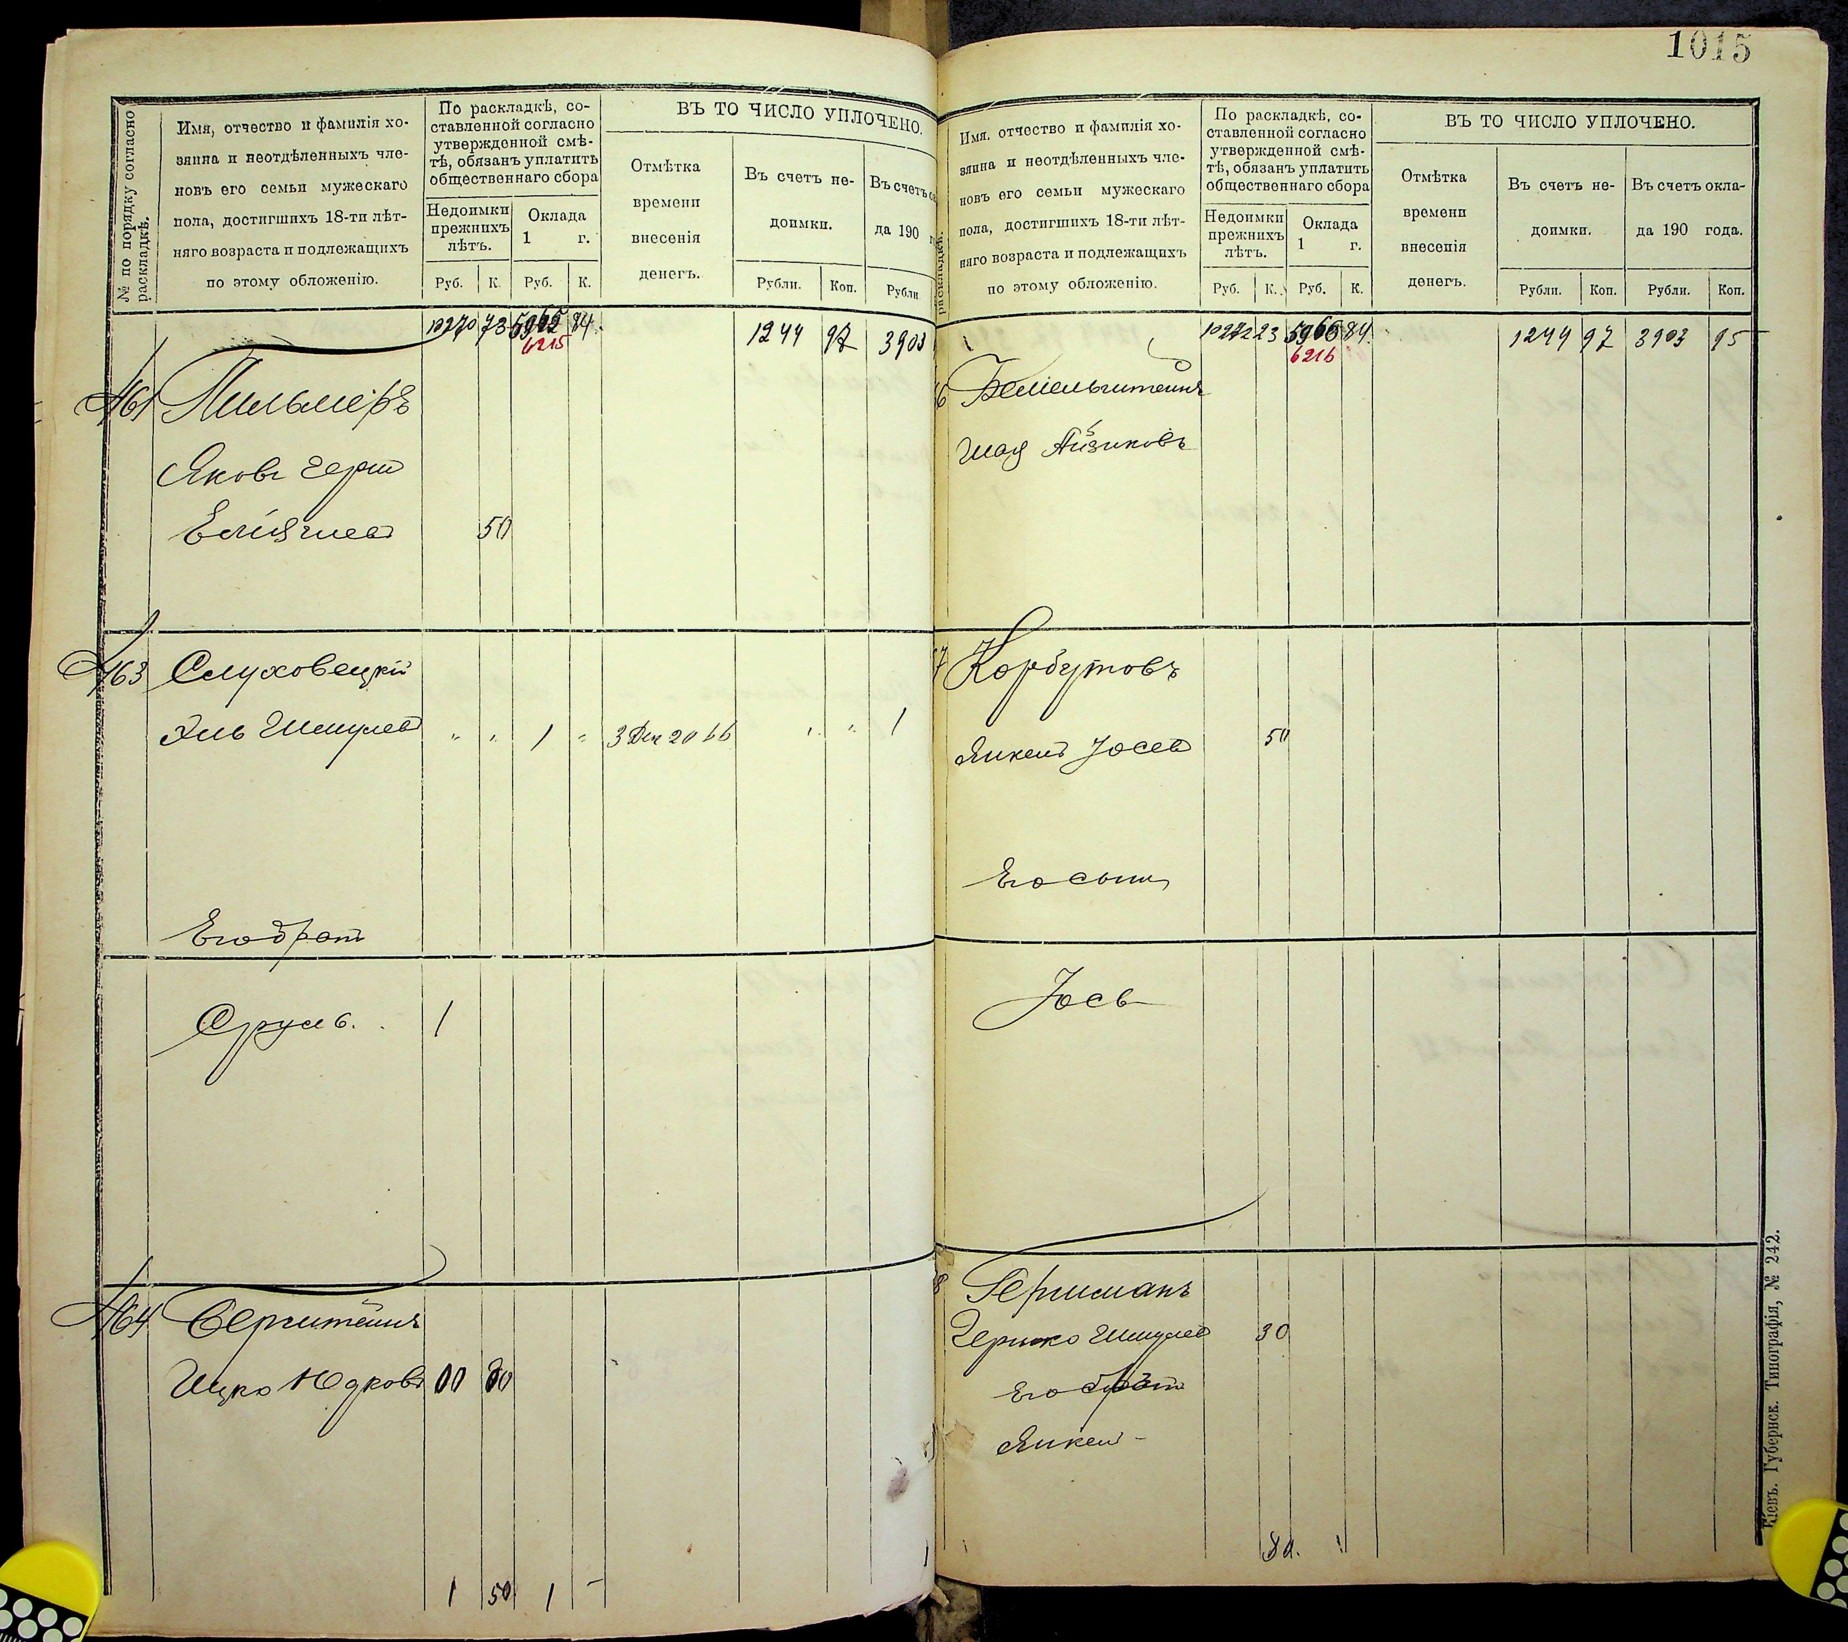 1015
№ по порядку согласно раскладкѣ.
Имя, отчество и фамилія хо-
зяина и неотдѣленныхъ чле-
новъ его семьи мужескаго
пола, достигшихъ 18-ти лѣт-
няго возраста и подлежащихъ
по этому обложенію.
По раскладкѣ, со-
ставленной согласно
утвержденной смѣ-
тѣ, обязанъ уплатить
общественнаго сбора
Недоимки
прежнихъ
лѣтъ.
Оклада
1 г.
Руб. К. Руб. К.
ВЪ ТО ЧИСЛО УПЛОЧЕНО.
Отмѣтка
времени
внесенія
денегъ.
Въ счетъ не-
доимки.
Рубли. Коп.
Въ счетъ
да 190
Рубли
10270 73 84
6215
1244 97 3903
461 Мильмеръ
Яковъ Герш
50
463 Слуховецкій
Эль Шмулев " " 1 " 3 Дек 2066 " " 1
Его брат
Сруль. 1
464
Ицко Юдков
1 50 1 -
Имя, отчество и фамилія хо-
зяина и неотдѣленныхъ чле-
новъ его семьи мужескаго
пола, достигшихъ 18-ти лѣт-
няго возраста и подлежащихъ
по этому обложенію.
раскладкѣ.
По раскладкѣ, со-
ставленной согласно
утвержденной смѣ-
тѣ, обязанъ уплатить
общественнаго сбора
Недоимки
прежнихъ
лѣтъ.
Оклада
1 г.
Руб. К. Руб. К.
ВЪ ТО ЧИСЛО УПЛОЧЕНО.
Отмѣтка
времени
внесенія
денегъ.
Въ счетъ не-
доимки.
Рубли. Коп.
Въ счетъ окла-
да 190 года.
Рубли. Коп.
10272 23 84
6216
1244 97 3903 95
6
Шая Айзиковъ
7 Корбутовъ
Янкель Іосев 50
Его сын
Іось
8 Гершманъ
Гершко Шмулев 30
Его брат
Янкель -
80.
Кіевъ. Губернск. Типографія, № 242.